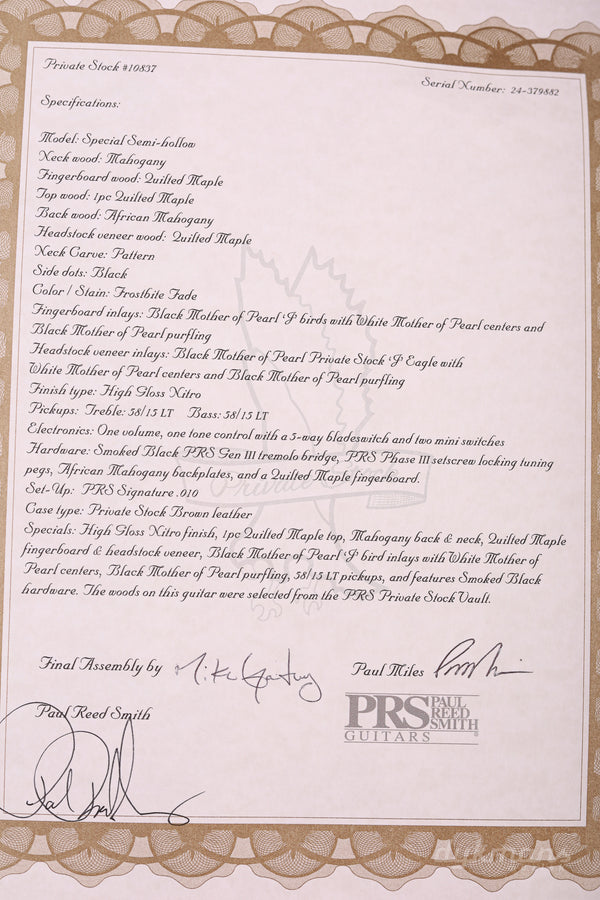 Private Stock #10837
Serial Number: 24-379882
Specifications:
Model: Special Semi-hollow
Neck wood: Mahogany
Fingerboard wood: Quilted Maple
Top wood: 1pc Quilted Maple
Back wood: African Mahogany
Headstock veneer wood: Quilted Maple
Neck Carve: Pattern
Side dots: Black
Color / Stain: Frostbite Fade
Fingerboard inlays: Black Mother of Pearl 'J' birds with White Mother of Pearl centers and
Black Mother of Pearl purfling
Headstock veneer inlays: Black Mother of Pearl Private Stock 'J' Eagle with
White Mother of Pearl centers and Black Mother of Pearl purfling
Finish type: High Gloss Nitro
Pickups: Treble: 58/15 LT Bass: 58/15 LT
Electronics: One volume, one tone control with a 5-way bladeswitch and two mini switches
Hardware: Smoked Black PRS Gen III tremolo bridge, PRS Phase III setscrew locking tuning
pegs, African Mahogany backplates, and a Quilted Maple fingerboard.
Private Stock
Set-Up: PRS Signature .010
Case type: Private Stock Brown leather
Specials: High Gloss Nitro finish, 1pc Quilted Maple top, Mahogany back & neck, Quilted Maple
fingerboard & headstock veneer, Black Mother of Pearl 'J' bird inlays with White Mother of
Pearl centers, Black Mother of Pearl purfling, 58/15 LT pickups, and features Smoked Black
hardware. The woods on this guitar were selected from the PRS Private Stock Vault.
Final Assembly by
Paul Miles
Paul Reed Smith
PRS PAUL REED SMITH
GUITARS